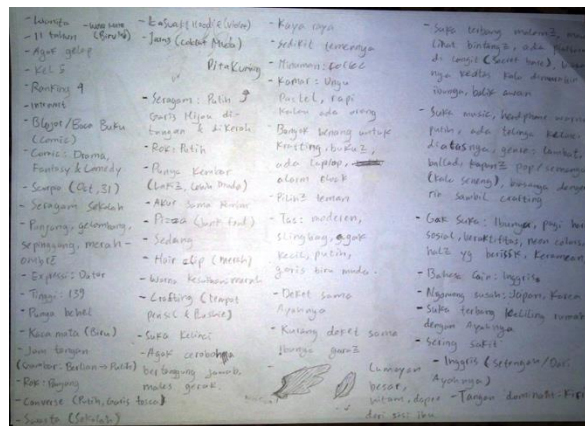 - Wanita
- 11 tahun
- Agak gelap
- Kel 5
- Ranking 4
- Intranst
- Blogor/Baca Buku
(Comic)
- Comic: Drama,
Fantasy & Comedy
- Scorpio (Oct, 31)
- Seragam sekolah
- Panjang, gelombang,
sepinggang, merah -
ombre
- Expresi: Datar
- Tinggi: 139
- Punya behel
- Kaca mata (Biru)
- Jam tangan
- Rok: Payung
- Converse (Putih, Garis tosca)
- Swasta (Sekolah)
- Jeans (Coklat Muda)
Pita Kuning
- Seragam: Putih
Garis Hijau di
tangan & dikerah
- Rok: Putih
- Punya Kembar
- Akur sama Kembar
- Pizza (junk food)
- Sedang
- Hair clip (merah)
- Warna kesukaan: merah
- Crafting (tempat
pensil & Plushie)
- Suka Kelinci
- Agak ceroboh,
bertanggung jawab,
males gerak.
- Kaya raya
- sedikit temennya
- Kamar: Ungu
Pastel, rapi
- Banyak benang untuk
Knitting, buku2,
ada laptop,
alarm clock
- Pilih2 teman
- Tas: moderen,
slingbag, agak
kecil, putih,
garis biru muda.
- Deket sama
Ayahnya
- Kurang deket sama
Ibunya
Lumayan
besar,
hitam, dapet
dari sisi ibu
- Suka terbang malam2,
lihat bintang2, ada
di langit (secret base),
ibunya, balik awan
- Suka music, headphone
putih, ada telinga kelinci
diatasnya, genre: lambat,
ballad, kapan2 pop/semangat
(kalo seneng), biasanya denge-
rin sambil crafting
- Gak suka: Ibunya, pagi hari,
sosial, beraktifitas, neon colors,
hal2 yg berisik, keramean
- Bahasa lain: Inggris
- Suka terbang keliling rumah
dengan Ayahnya
- Sering sakit
- Inggris (setengah/Dari
Ayahnya)
- Tangan dominate: Kiri